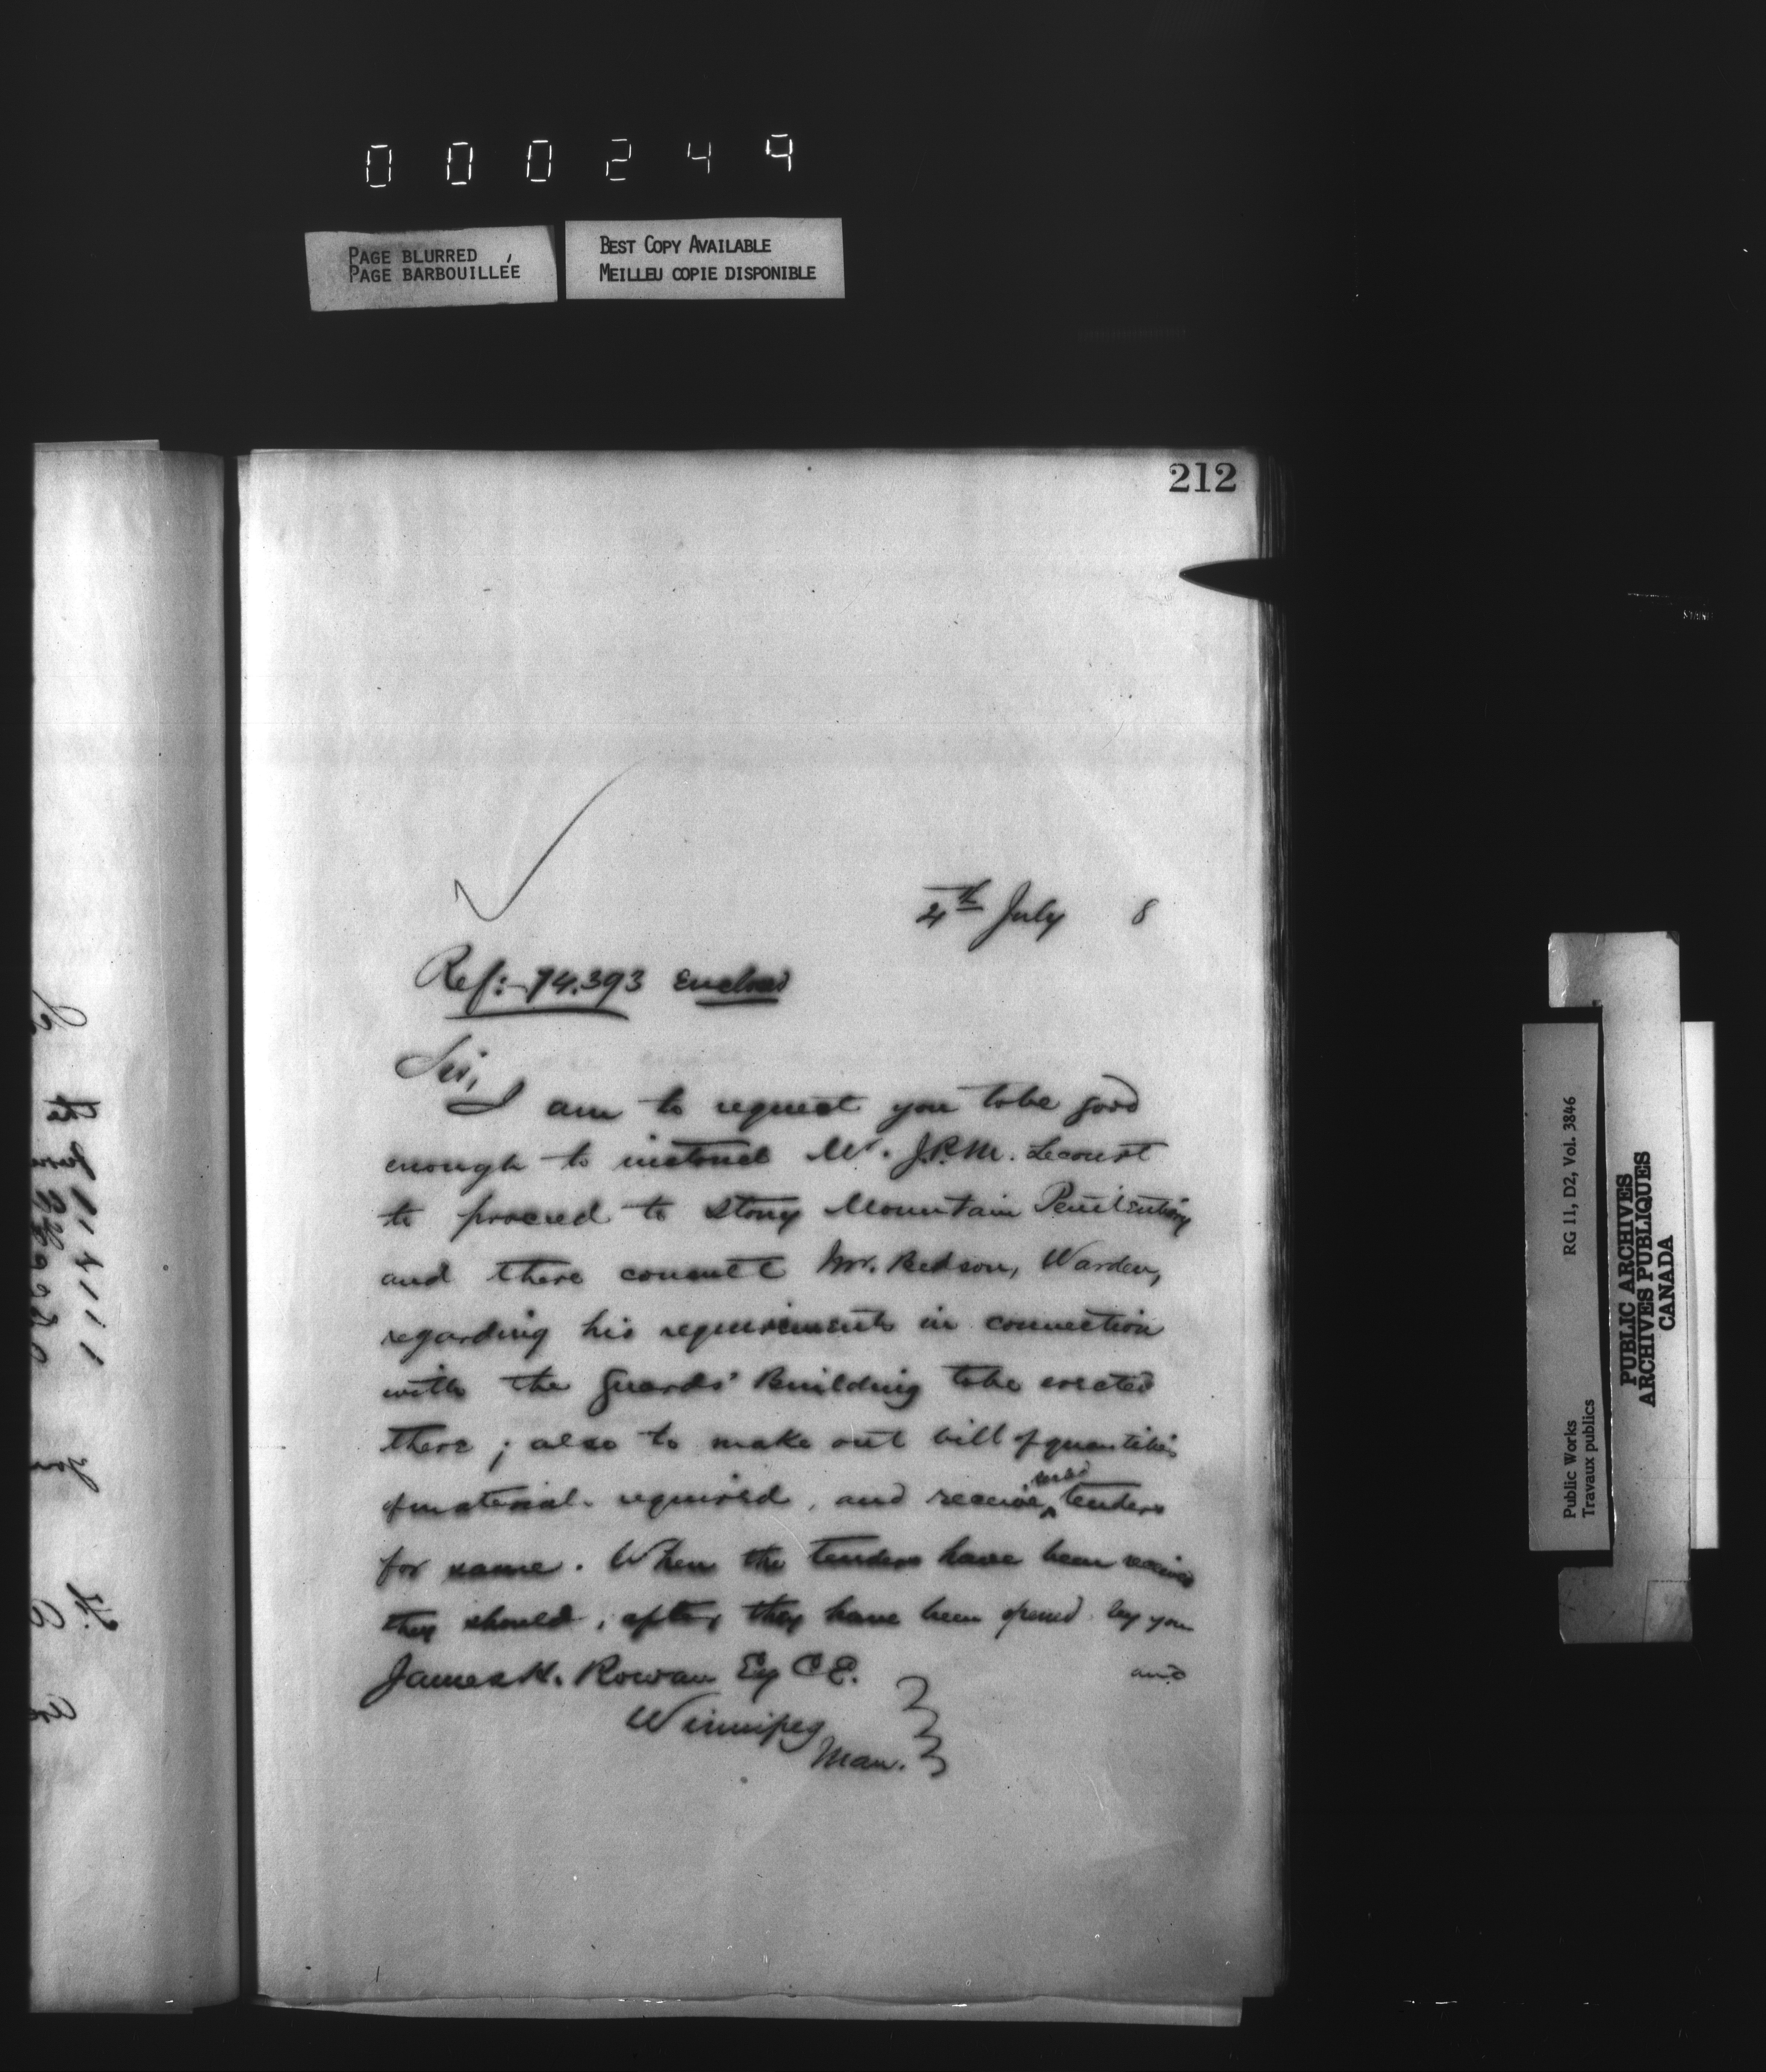 000249
PAGE BLURRED
PAGE BARBOUILLÉE
BEST COPY AVAILABLE
MEILLEU COPIE DISPONIBLE
212
4th July 8
Ref: 74.393 Enclosed
Sir,
I am to request you to be good
enough to instruct Mr. J.P.M. Lecourt
to proceed to Stony Mountain Penitentiary
and there consult Mr. Bedson, Warden,
regarding his requirements in connection
with the Guards' Building to be erected
there; also to make out bill of quantities
of material required, and receive tenders
for same. When the tenders have been received
they should, after they have been opened by you
James H. Rowan Esq C.E. and
Winnipeg
Man.
Public Works
Travaux publics
RG 11, D2, Vol. 3846
PUBLIC ARCHIVES
ARCHIVES PUBLIQUES
CANADA